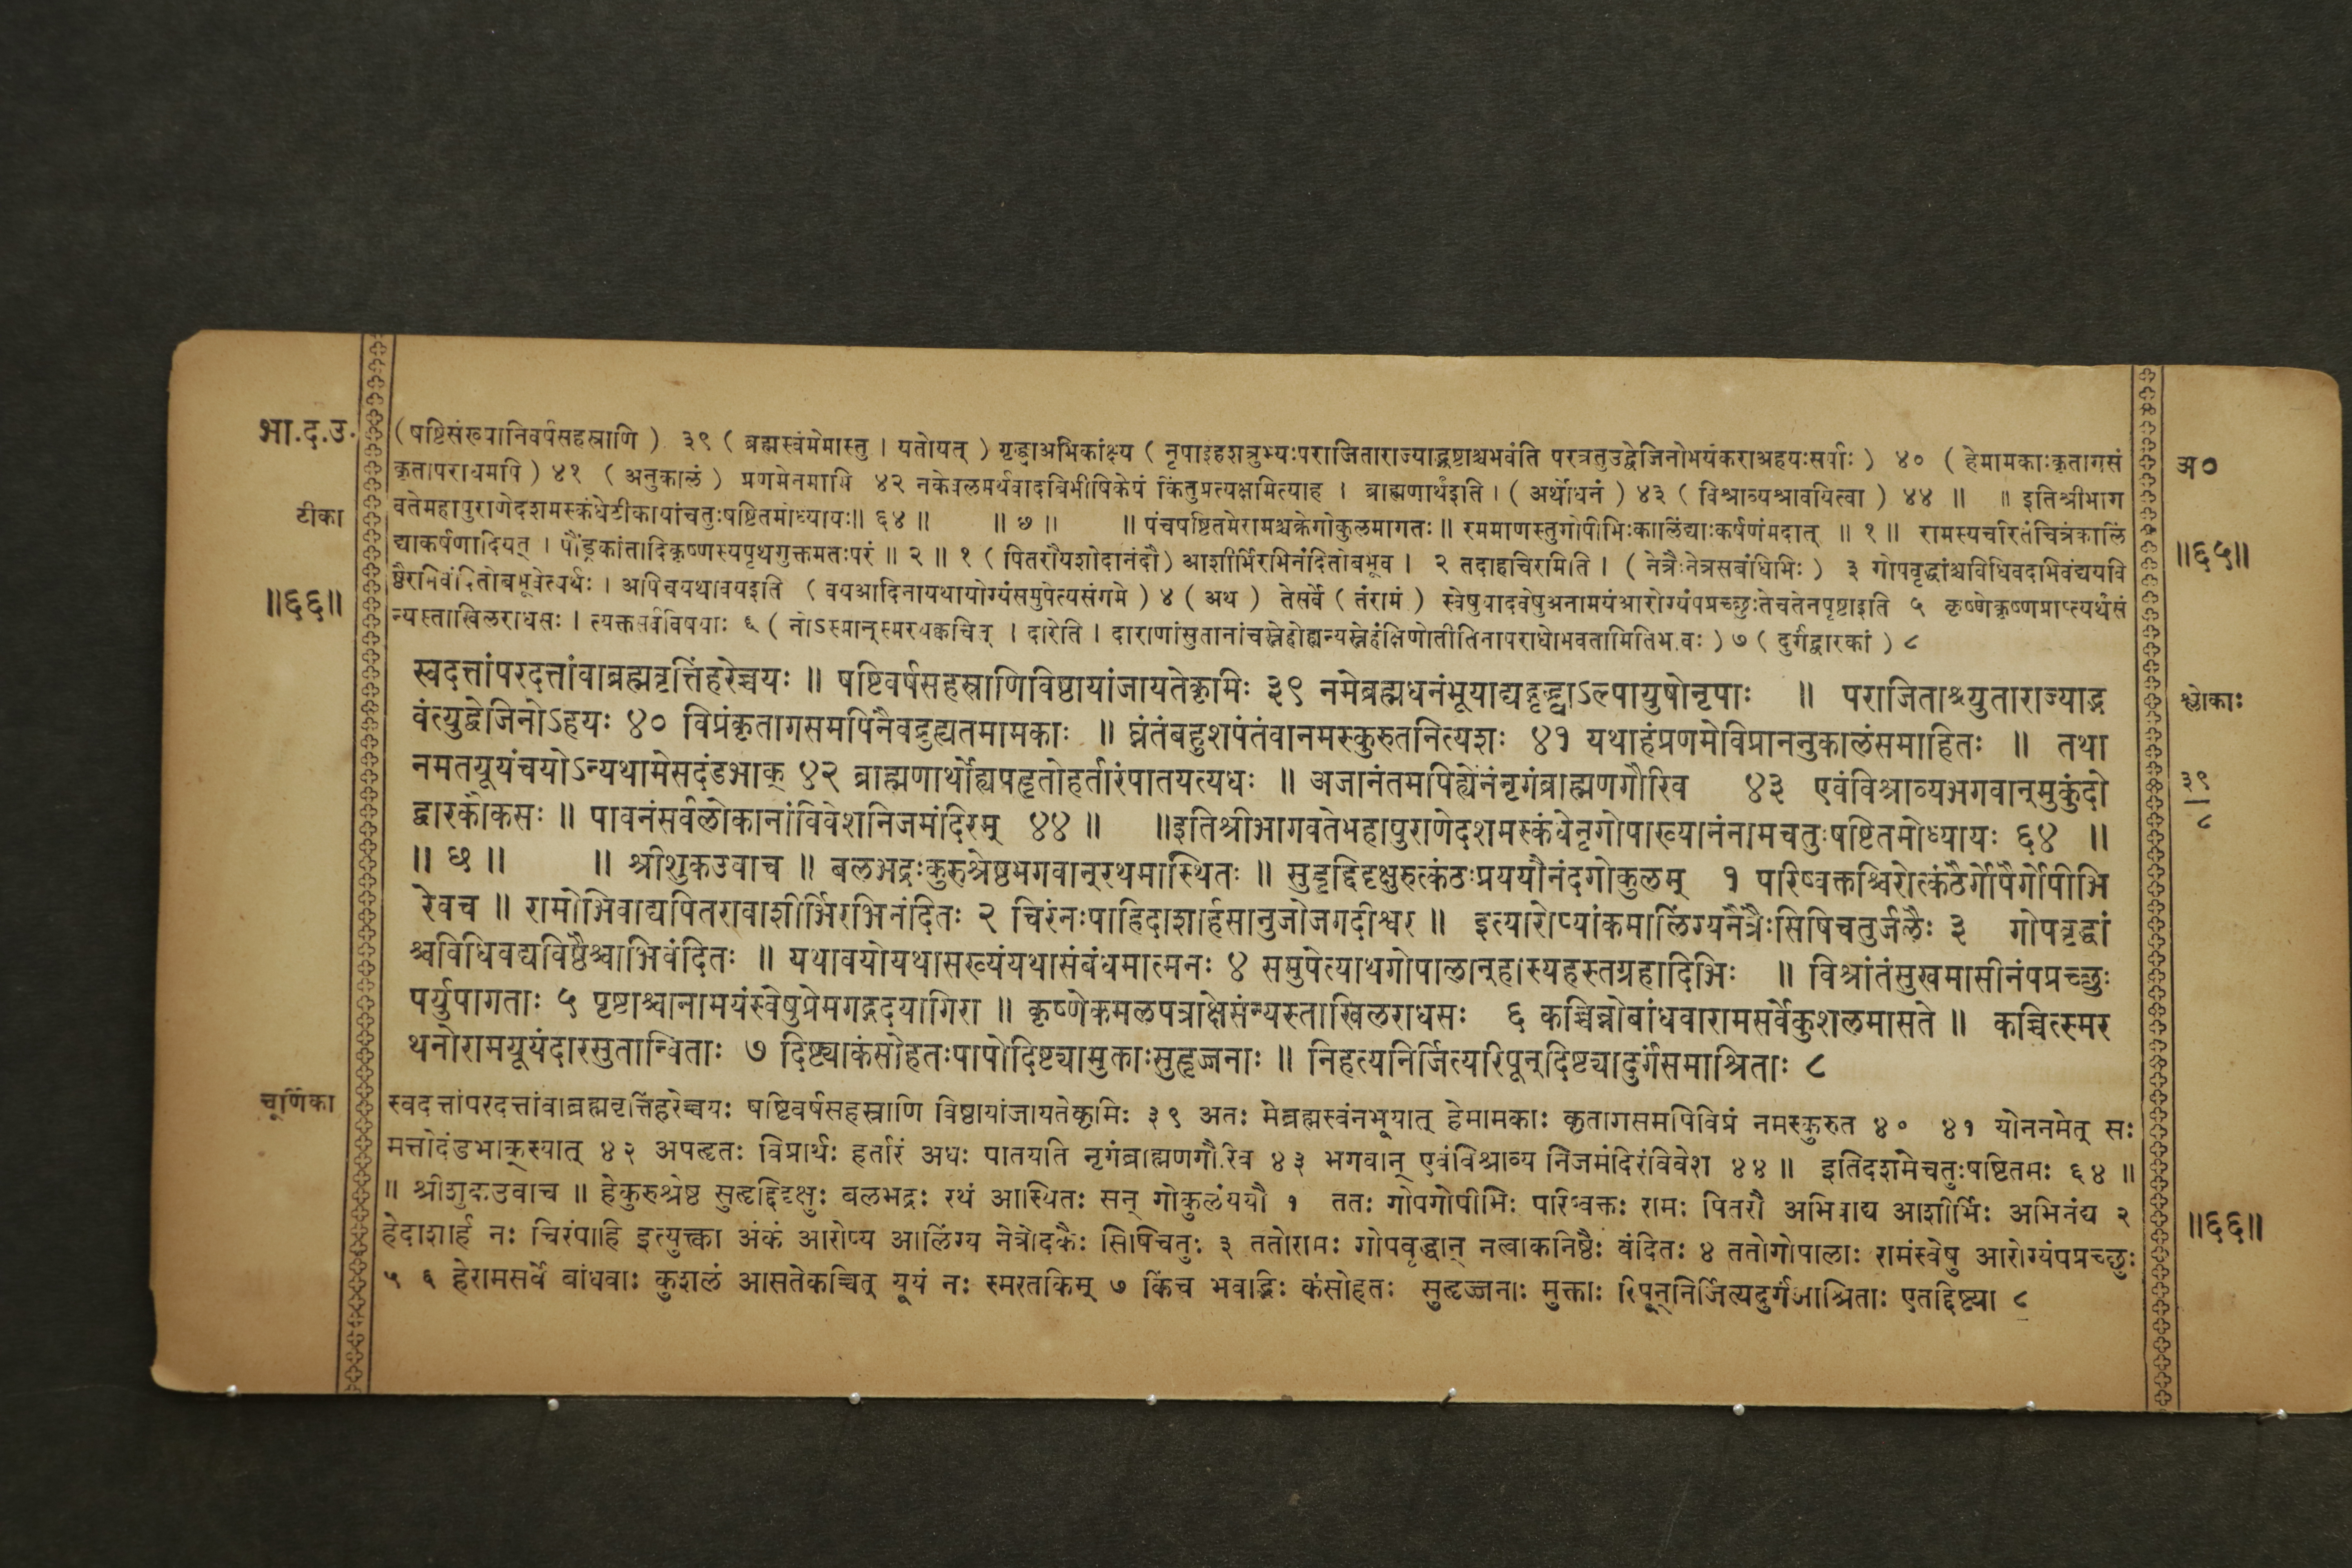 भा.द.उ.
(षष्टिसंख्यानिवर्षसहस्राणि) ३९ ( ब्रह्मस्वंमेमास्तु । यतोयत् ) गृद्ध्वाअभिकांक्ष्य ( नृपाइहशत्रुभ्यःपराजिताराज्याद्भ्रष्टाश्चभवंति परत्रतुउद्वेजिनोभयंकराअहयःसर्पाः ) ४० ( हेमामकाःकृतागसं
अ०
कृतापराधमपि ) ४१ ( अनुकालं ) प्रणमेनमामि ४२ नकेवलमर्थवादबिभीषिकेयं किंतुप्रत्यक्षमित्याह । ब्राह्मणार्थइति । ( अर्थोधनं ) ४३ ( विश्राव्यश्रावयित्वा ) ४४ ॥ ॥ इतिश्रीभाग
टीका
वतेमहापुराणेदशमस्कंधेटीकायांचतुःषष्टितमोध्यायः॥ ६४ ॥ ॥ ७ ॥ ॥ पंचषष्टितमेरामश्चक्रेगोकुलमागतः॥ रममाणस्तुगोपीभिःकालिंद्याःकर्षणंमदात् ॥ १ ॥ रामस्यचरितंचित्रंकालिं
॥६५॥
द्याकर्षणादियत् । पौंड्रकांतादिकृष्णस्यपृथगुक्तमतःपरं ॥ २ ॥ १ ( पितरौयशोदानंदौ) आशीर्भिरभिनंदितोबभूव । २ तदाहचिरमिति । ( नेत्रैःनेत्रसबंधिभिः ) ३ गोपवृद्धांश्चविधिवदभिवंद्ययवि
॥६६॥
ष्ठैरभिवंदितोबभूवेत्यर्थः । अपिचयथावयइति ( वयआदिनायथायोग्यंसमुपेत्यसंगमे ) ४ ( अथ ) तेसर्वे ( तंरामं ) स्वेषुयादवेषुअनामयंआरोग्यंपप्रच्छुःतेचतेनपृष्टाइति ५ कृष्णेकृष्णप्राप्त्यर्थंसं
न्यस्ताखिलराधसः । त्यक्तसर्वविषयाः ६ ( नोऽस्मान्स्मरथकच्चित् । दारेति । दाराणांसुतानांचस्नेहोह्यन्यस्नेहंक्षिणोतीतिनापराधोभवतामितिभावः ) ७ ( दुर्गंद्वारकां ) ८
स्वदत्तांपरदत्तांवाब्रह्मवृत्तिंहरेच्चयः ॥ षष्टिवर्षसहस्राणिविष्ठायांजायतेकृमिः ३९ नमेब्रह्मधनंभूयाद्यद्गृद्ध्वाऽल्पायुषोनृपाः ॥ पराजिताश्च्युताराज्याद्भ
श्लोकाः
वंत्युद्वेजिनोऽहयः ४० विप्रंकृतागसमपिनैवद्रुह्यतमामकाः ॥ घ्नंतंबहुशपंतंवानमस्कुरुतनित्यशः ४१ यथाहंप्रणमेविप्राननुकालंसमाहितः ॥ तथा
नमतयूयंचयोऽन्यथामेसदंडभाक् ४२ ब्राह्मणार्थोह्यपहृतोहर्तारंपातयत्यधः ॥ अजानंतमपिह्येनंनृगंब्राह्मणगौरिव ४३ एवंविश्राव्यभगवान्मुकुंदो
३९
८
द्वारकौकसः ॥ पावनंसर्वलोकानांविवेशनिजमंदिरम् ४४ ॥ ॥इतिश्रीभागवतेमहापुराणेदशमस्कंधेनृगोपाख्यानंनामचतुःषष्टितमोध्यायः ६४ ॥
॥ छ ॥ ॥ श्रीशुकउवाच ॥ बलभद्रःकुरुश्रेष्ठभगवान्रथमास्थितः ॥ सुहृद्दिदृक्षुरुत्कंठःप्रययौनंदगोकुलम् १ परिष्वक्तश्चिरोत्कंठैर्गोपैर्गोपीभि
रेवच ॥ रामोभिवाद्यपितरावाशीर्भिरभिनंदितः २ चिरंनःपाहिदाशार्हसानुजोजगदीश्वर ॥ इत्यारोप्यांकमालिंग्यनेत्रैःसिषिचतुर्जलैः ३ गोपवृद्धां
श्चविधिवद्यविष्ठैश्चाभिवंदितः ॥ यथावयोयथासख्यंयथासंबंधमात्मनः ४ समुपेत्याथगोपालान्हास्यहस्तग्रहादिभिः ॥ विश्रांतंसुखमासीनंपप्रच्छुः
पर्युपागताः ५ पृष्टाश्चानामयंस्वेषुप्रेमगद्गदयागिरा ॥ कृष्णेकमलपत्राक्षेसंन्यस्ताखिलराधसः ६ कच्चिन्नोबांधवारामसर्वेकुशलमासते ॥ कच्चित्स्मर
थनोरामयूयंदारसुतान्विताः ७ दिष्ट्याकंसोहतःपापोदिष्ट्यामुक्ताःसुहृज्जनाः ॥ निहत्यनिर्जित्यरिपून्दिष्ट्यादुर्गंसमाश्रिताः ८
चूर्णिका
स्वदत्तांपरदत्तांवाब्रह्मवृत्तिंहरेच्चयः षष्टिवर्षसहस्राणि विष्ठायांजायतेकृमिः ३९ अतः मेब्रह्मस्वंनभूयात् हेमामकाः कृतागसमपिविप्रं नमस्कुरुत ४० ४१ योननमेत् सः
मत्तोदंडभाक्स्यात् ४२ अपहृतः विप्रार्थः हर्तारं अधः पातयति नृगंब्राह्मणगौरिव ४३ भगवान् एवंविश्राव्य निजमंदिरंविवेश ४४ ॥ इतिदशमेचतुःषष्टितमः ६४ ॥
॥ श्रीशुकउवाच ॥ हेकुरुश्रेष्ठ सुहृद्दिदृक्षुः बलभद्रः रथं आस्थितः सन् गोकुलंययौ १ ततः गोपगोपीभिः परिष्वक्तः रामः पितरौ अभिवाद्य आशीर्भिः अभिनंद्य २
॥६६॥
हेदाशार्ह नः चिरंपाहि इत्युक्त्वा अंकं आरोप्य आलिंग्य नेत्रोदकैः सिषिचतुः ३ ततोरामः गोपवृद्धान् नत्वाकनिष्ठैः वंदितः ४ ततोगोपालाः रामंस्वेषु आरोग्यंपप्रच्छुः
५ ६ हेरामसर्वे बांधवाः कुशलं आसतेकच्चित् यूयं नः स्मरतकिम् ७ किंच भवद्भिः कंसोहतः सुहृज्जनाः मुक्ताः रिपून्निर्जित्यदुर्गंआश्रिताः एतद्दिष्ट्या ८